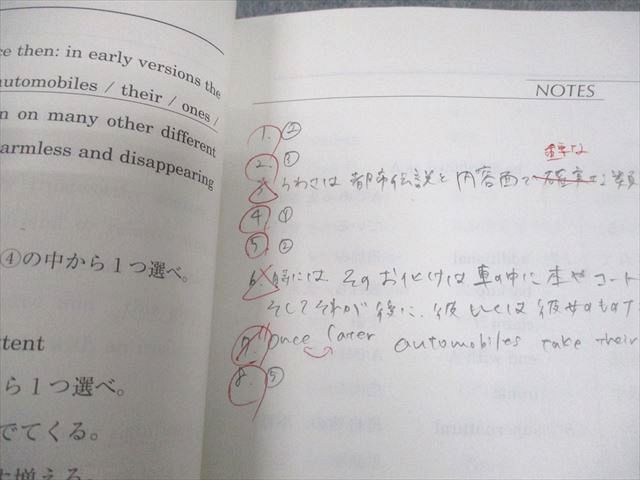 ce then: in early versions the
automobiles / their / ones /
n on many other different
armless and disappearing
④の中から1つ選べ。
tent
ら1つ選べ。
でてくる。
増える。
NOTES
1. ②
2. ③
重要な
3. うわさは都市伝説と内容面で確実な
4. ①
5. ②
6. 時には そのお化けは車の中に本やコート
そしてそれが後に、彼もしくは彼女のもの
7. Once later automobiles take their
8. ⑤